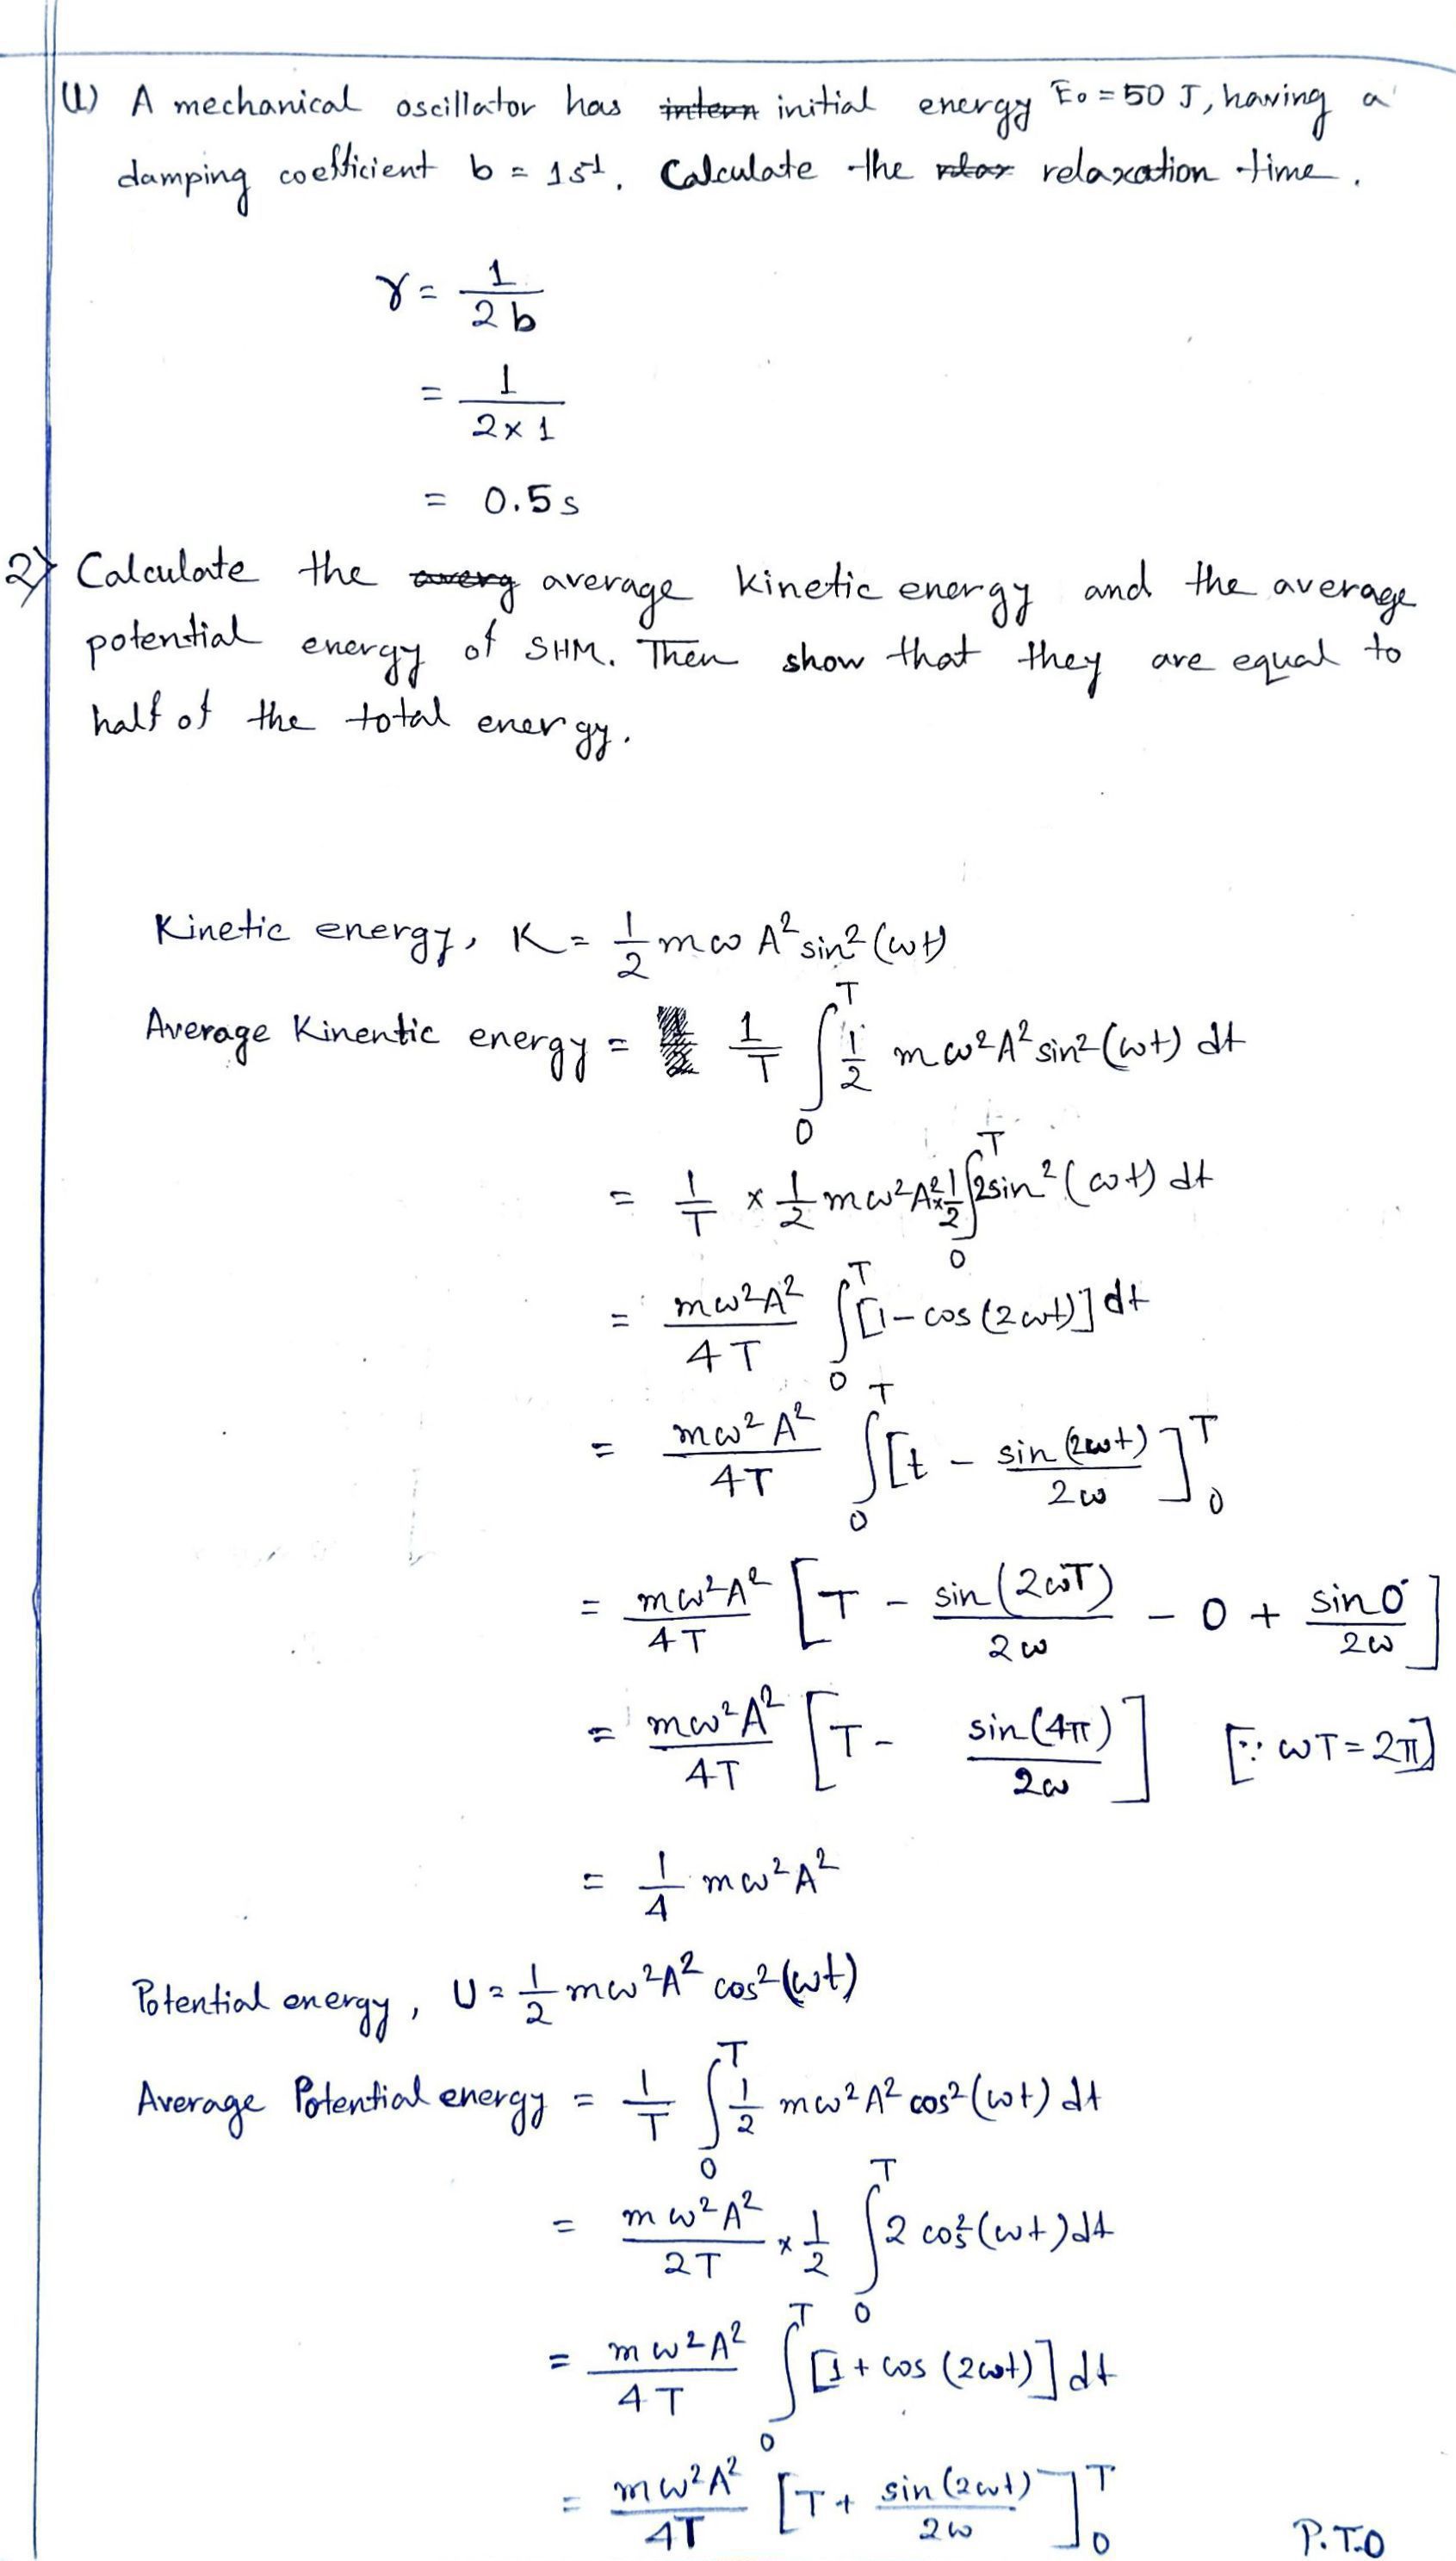 (1) A mechanical oscillator has intern initial energy E₀ = 50 J, having a
damping coefficient b = 1 s⁻¹. Calculate the relax relaxation time.
γ = 1/2b
= 1/(2×1)
= 0.5 s
2) Calculate the averg average kinetic energy and the average
potential energy of SHM. Then show that they are equal to
half of the total energy.
Kinetic energy, K = 1/2 mω A² sin² (ωt)
Average Kinentic energy = 1/T ∫₀ᵀ 1/2 mω²A² sin² (ωt) dt
= 1/T × 1/2 mω²A² × 1/2 ∫₀ᵀ 2sin² (ωt) dt
= mω²A²/4T ∫₀ᵀ [1 - cos (2ωt)] dt
= mω²A²/4T ∫₀ᵀ [t - sin (2ωt)/2ω]₀ᵀ
= mω²A²/4T [T - sin (2ωT)/2ω - 0 + sin 0/2ω]
= mω²A²/4T [T - sin (4π)/2ω] [∵ ωT = 2π]
= 1/4 mω²A²
Potential energy, U = 1/2 mω²A² cos² (ωt)
Average Potential energy = 1/T ∫₀ᵀ 1/2 mω²A² cos² (ωt) dt
= mω²A²/2T × 1/2 ∫₀ᵀ 2 cos² (ωt) dt
= mω²A²/4T ∫₀ᵀ [1 + cos (2ωt)] dt
= mω²A²/4T [T + sin (2ωt)/2ω]₀ᵀ
P.T.O